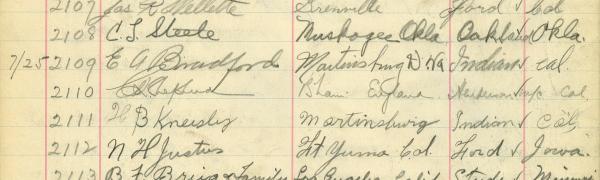 2107 Jas R Mellette Grenville Ford √ Col
2108 C. L. Steele Muskogee Okla. Oakland √ Okla.
7/25 2109 E A Bradford Martinsburg W Va Indian √ Cal.
2110 Cal.
2111 B Kneisly Martinsburg Indian √ Cal
2112 N H Justus Ft Yuma Cal. Ford √ Iowa.
2113 B F & Family Los Angeles Calif Stud √ Missouri